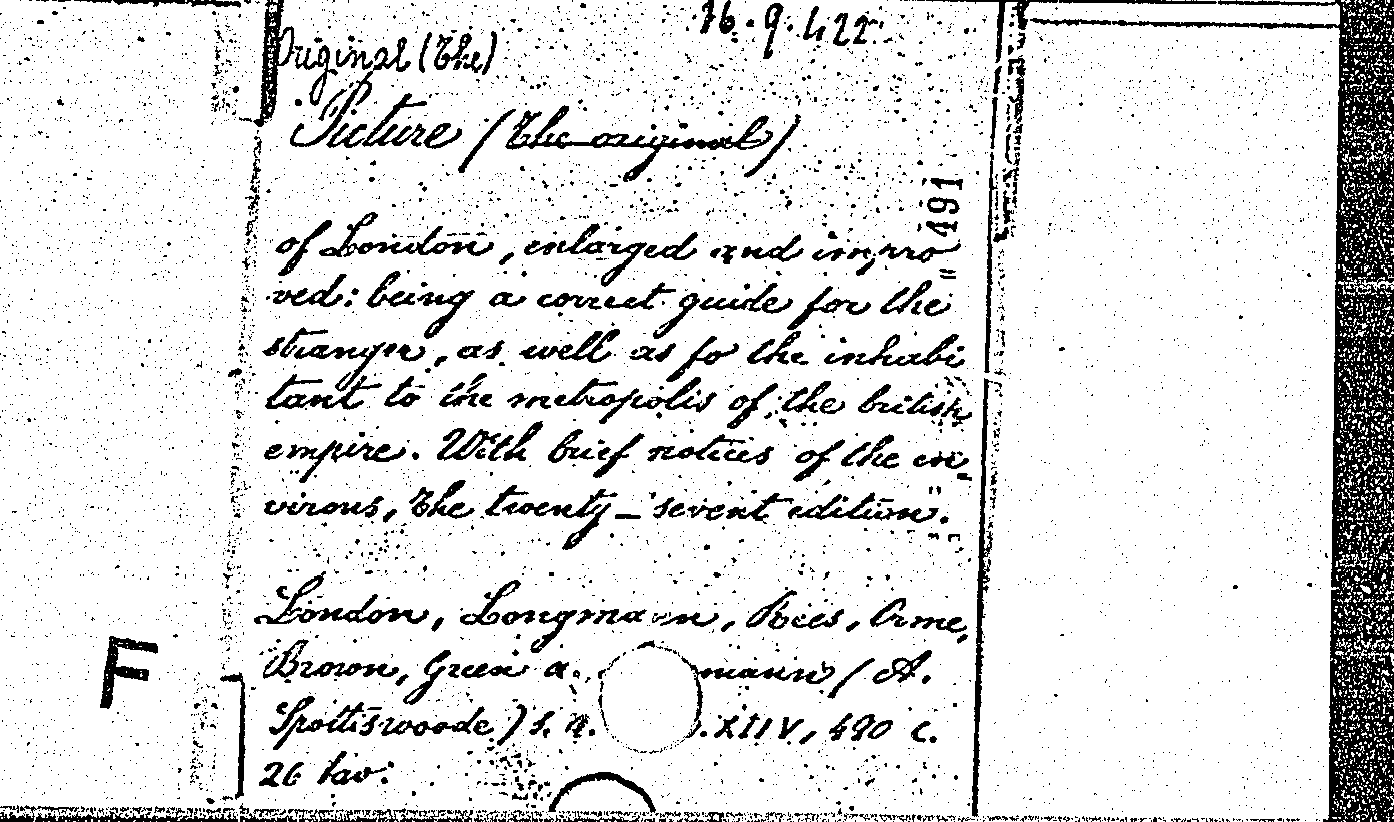 16.9.422
Original (The)
Picture (The original)
491
of London, enlarged and impro=
ved: being a correct guide for the
stranger, as well as fo the inhabi
tant to the metropolis of the british
empire. With brief notices of the en=
virons, The twenty-sevent edition.
London, Longmann, Rees, Orme,
Brown, Green a. mann (A.
Spottiswoode) s. a. XIIV, 490 c.
26 tav:
F